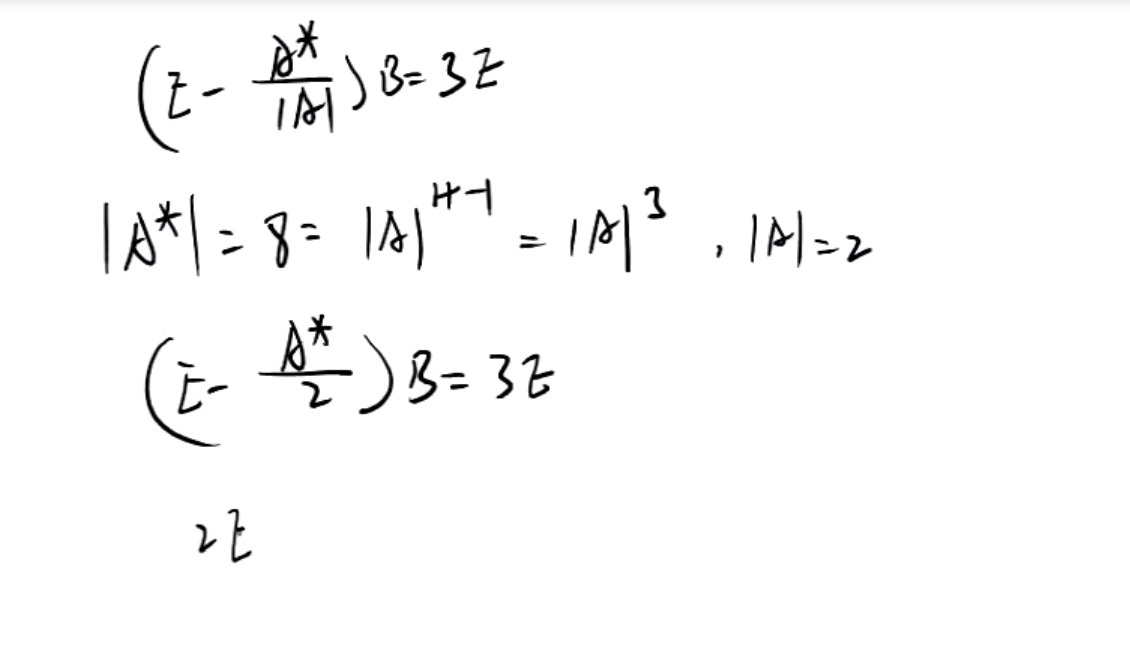 (E - A*/|A|) B = 3E
|A*| = 8 = |A|^{4-1} = |A|^3 , |A| = 2
(E - A*/2) B = 3E
2E